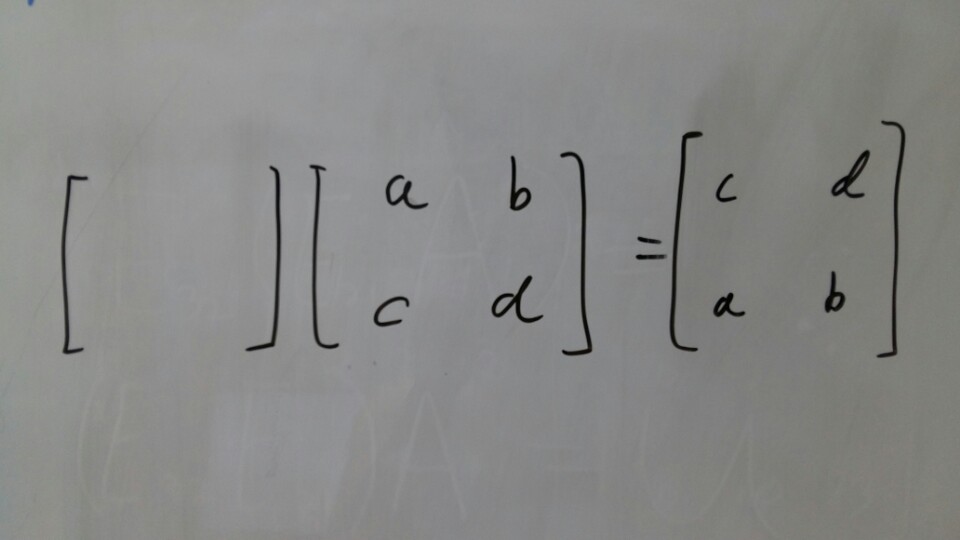 [ ] [ a b ] = [ c d ]
[ ] [ c d ] [ a b ]